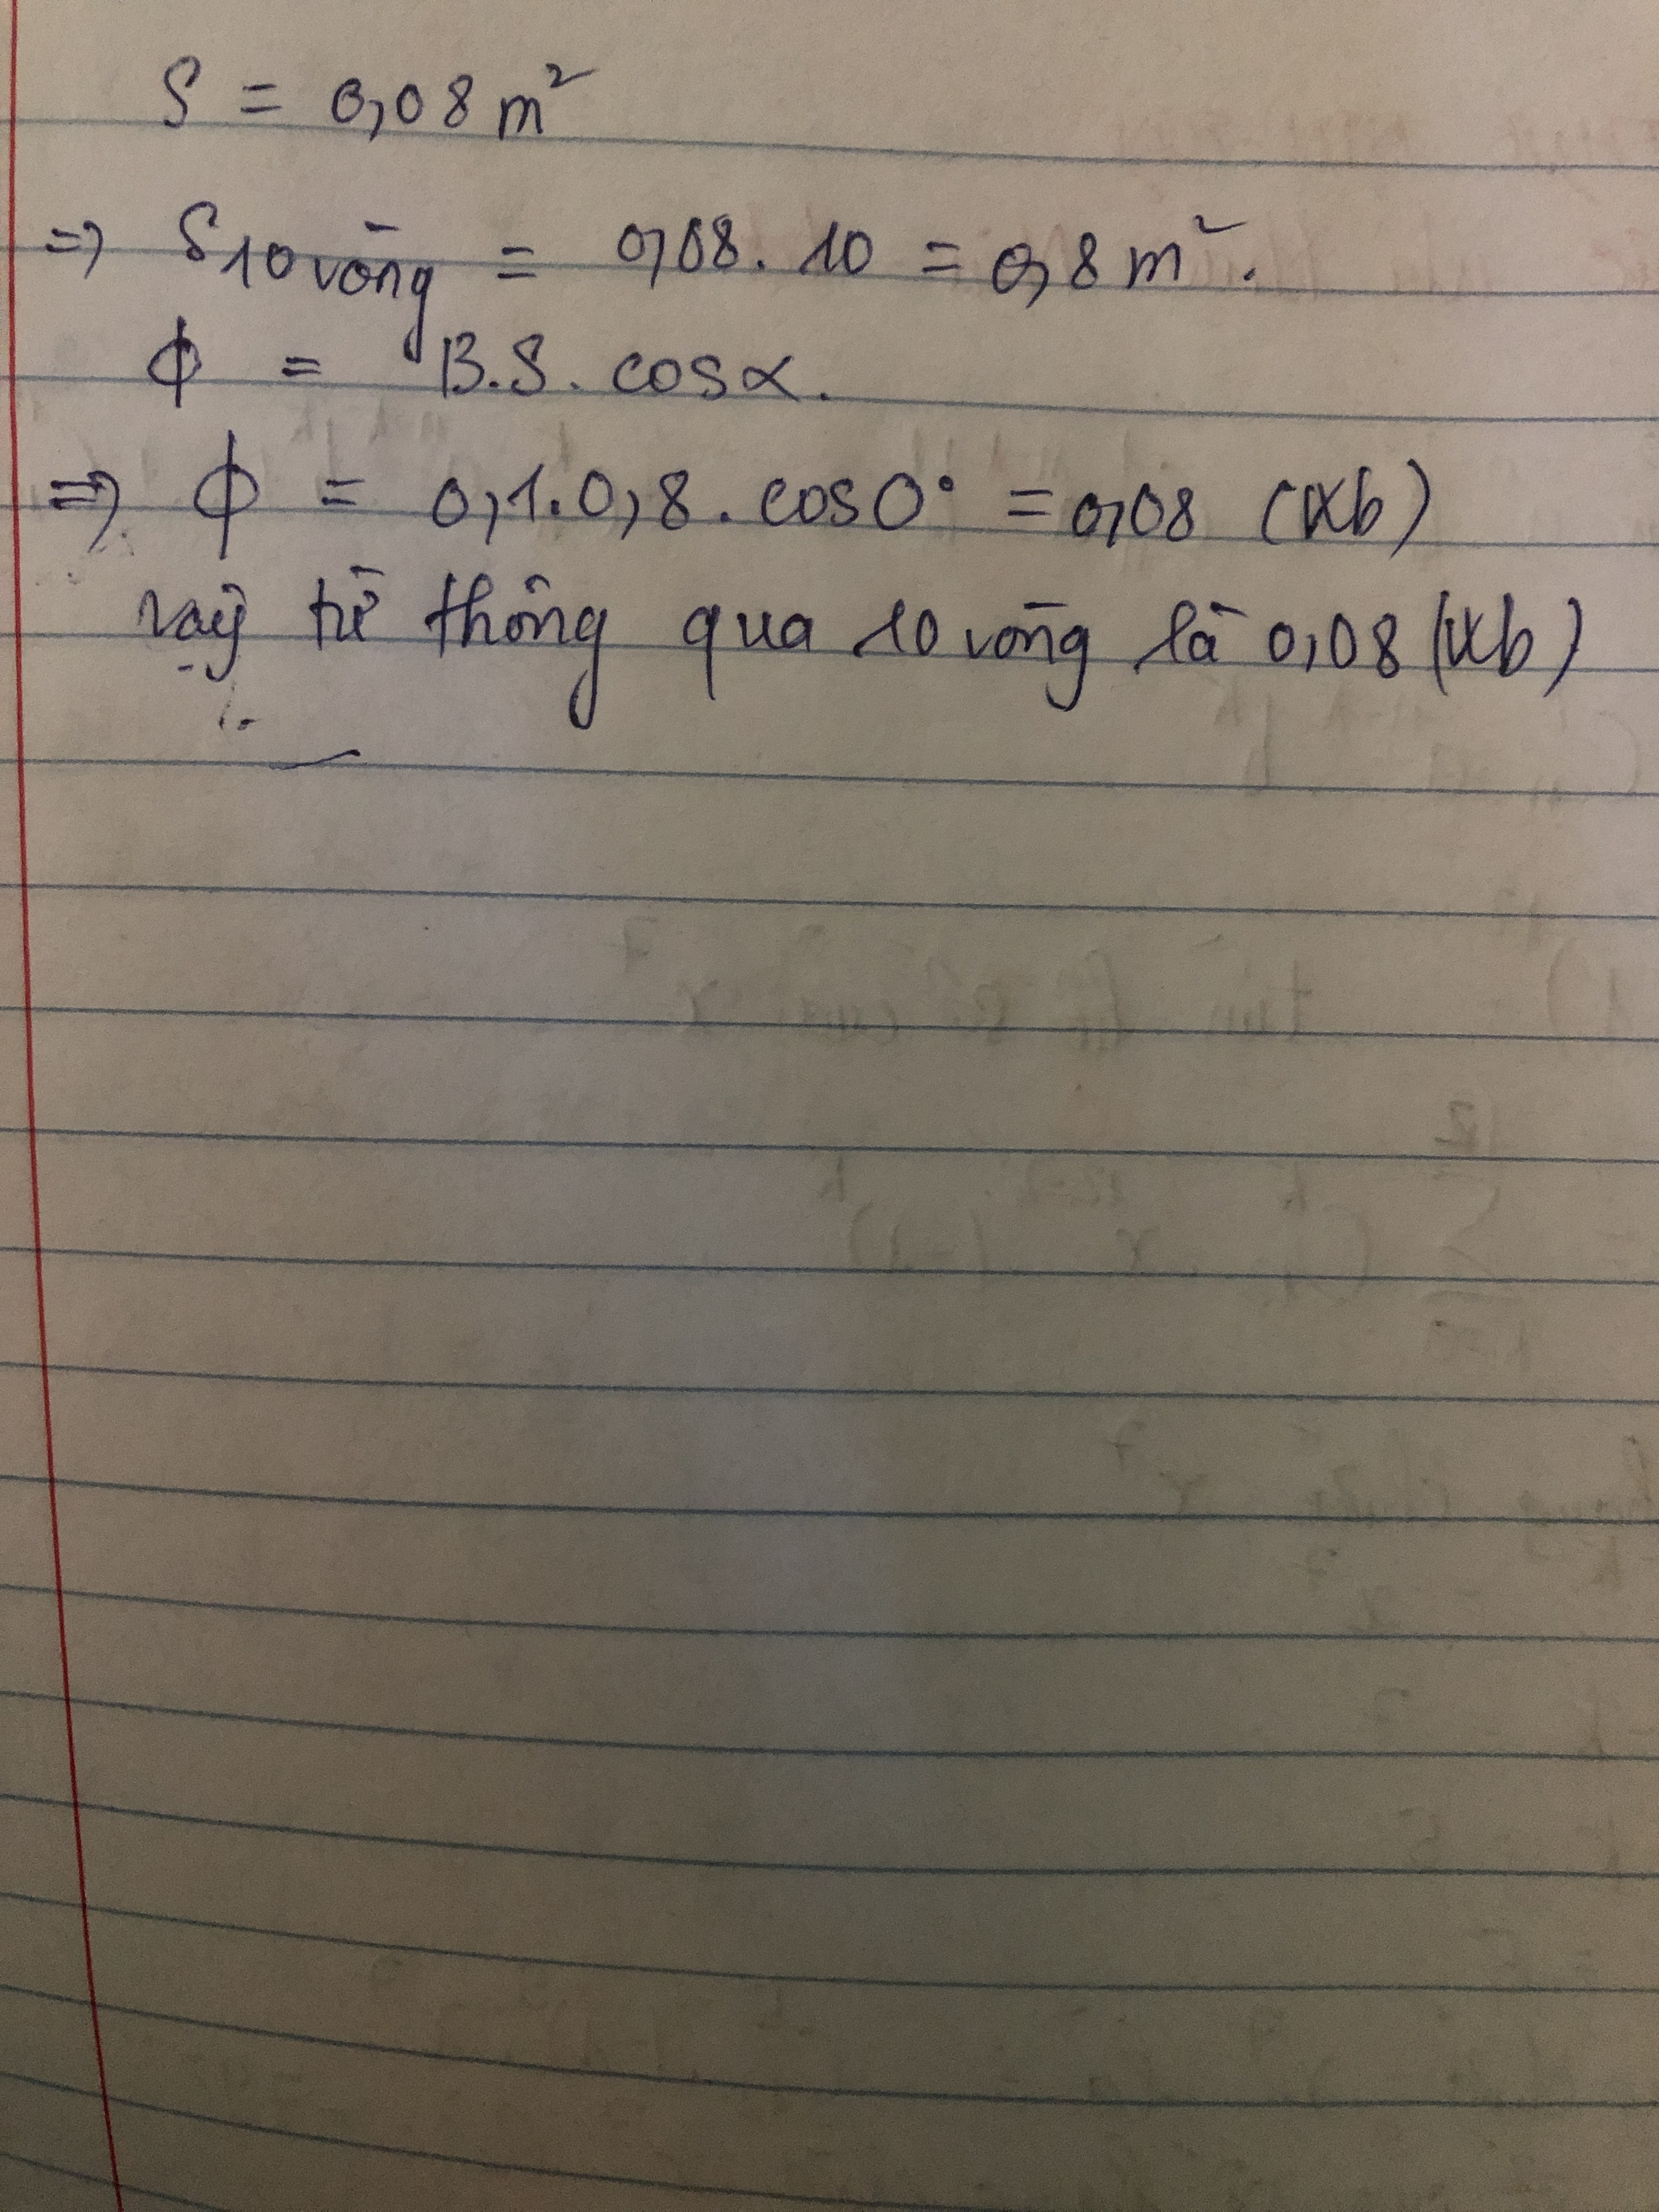 S = 0,08 m²
=> S10 vòng = 0,08. 10 = 0,8 m².
ɸ = B.S. cosα.
=> ɸ = 0,1.0,8. cos0° = 0,08 (Wb)
vậy từ thông qua 10 vòng là 0,08 (Wb)